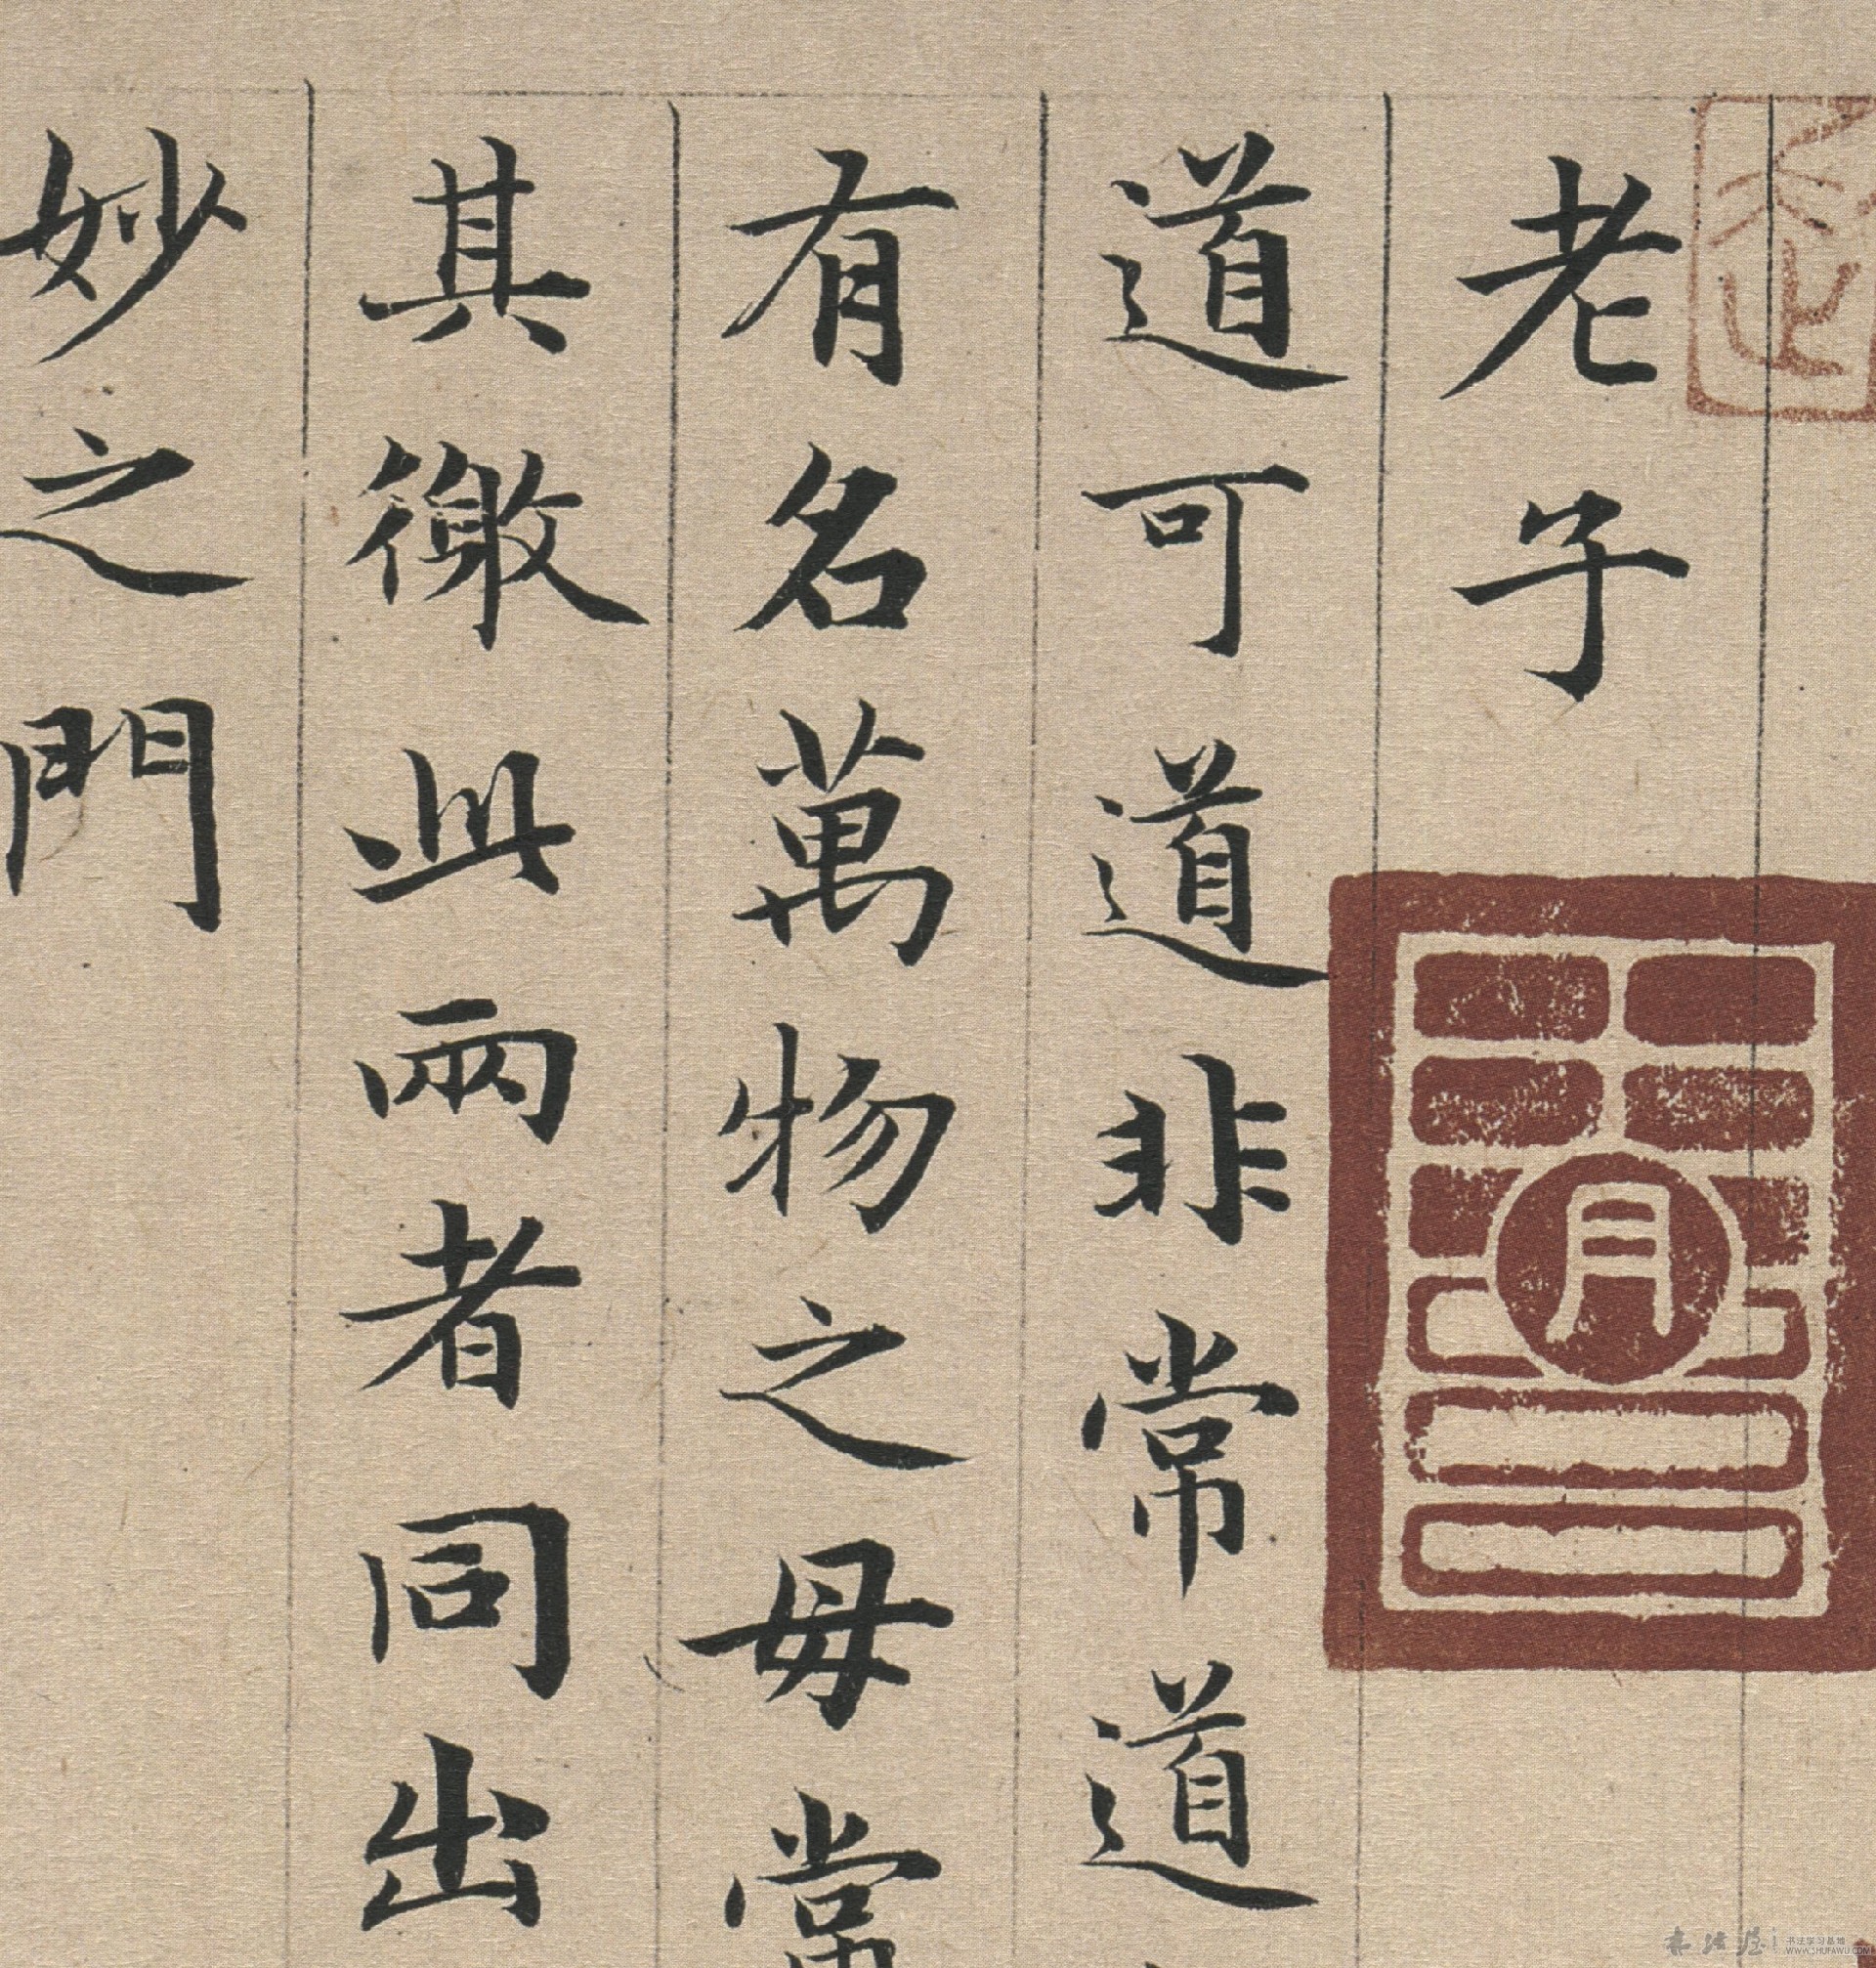 老子
道可道非常道
有名萬物之母常
其徼此兩者同出
妙之門
月
书法屋
书法学习基地
WWW.SHUFAWU.COM